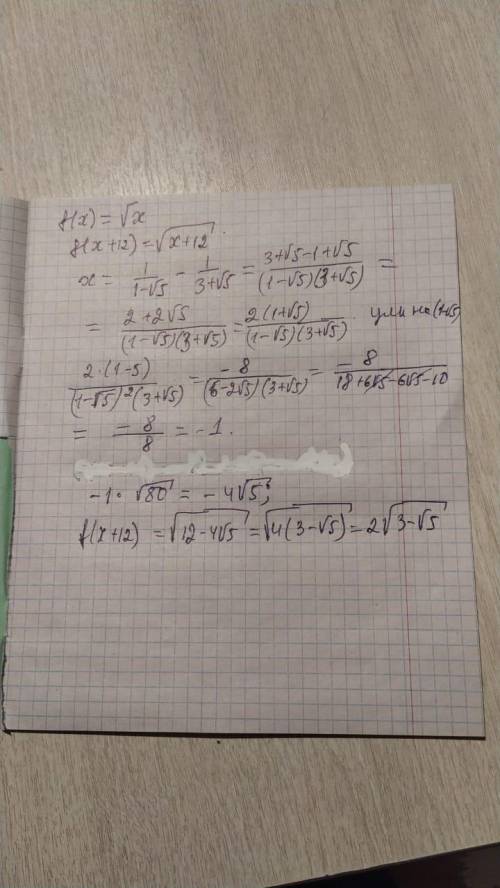 f(x) = √x
f(x+12) = √(x+12).
x = 1/(1-√5) - 1/(3+√5) = (3+√5-1+√5)/((1-√5)(3+√5)) =
= (2+2√5)/((1-√5)(3+√5)) = 2(1+√5)/((1-√5)(3+√5)).
2·(1-5)/((1-√5)²(3+√5)) = -8/((6-2√5)(3+√5)) = -8/(18+6√5-6√5-10)
= -8/8 = -1.
-1·√80 = -4√5;
f(x+12) = √(12-4√5) = √(4(3-√5)) = 2√(3-√5)